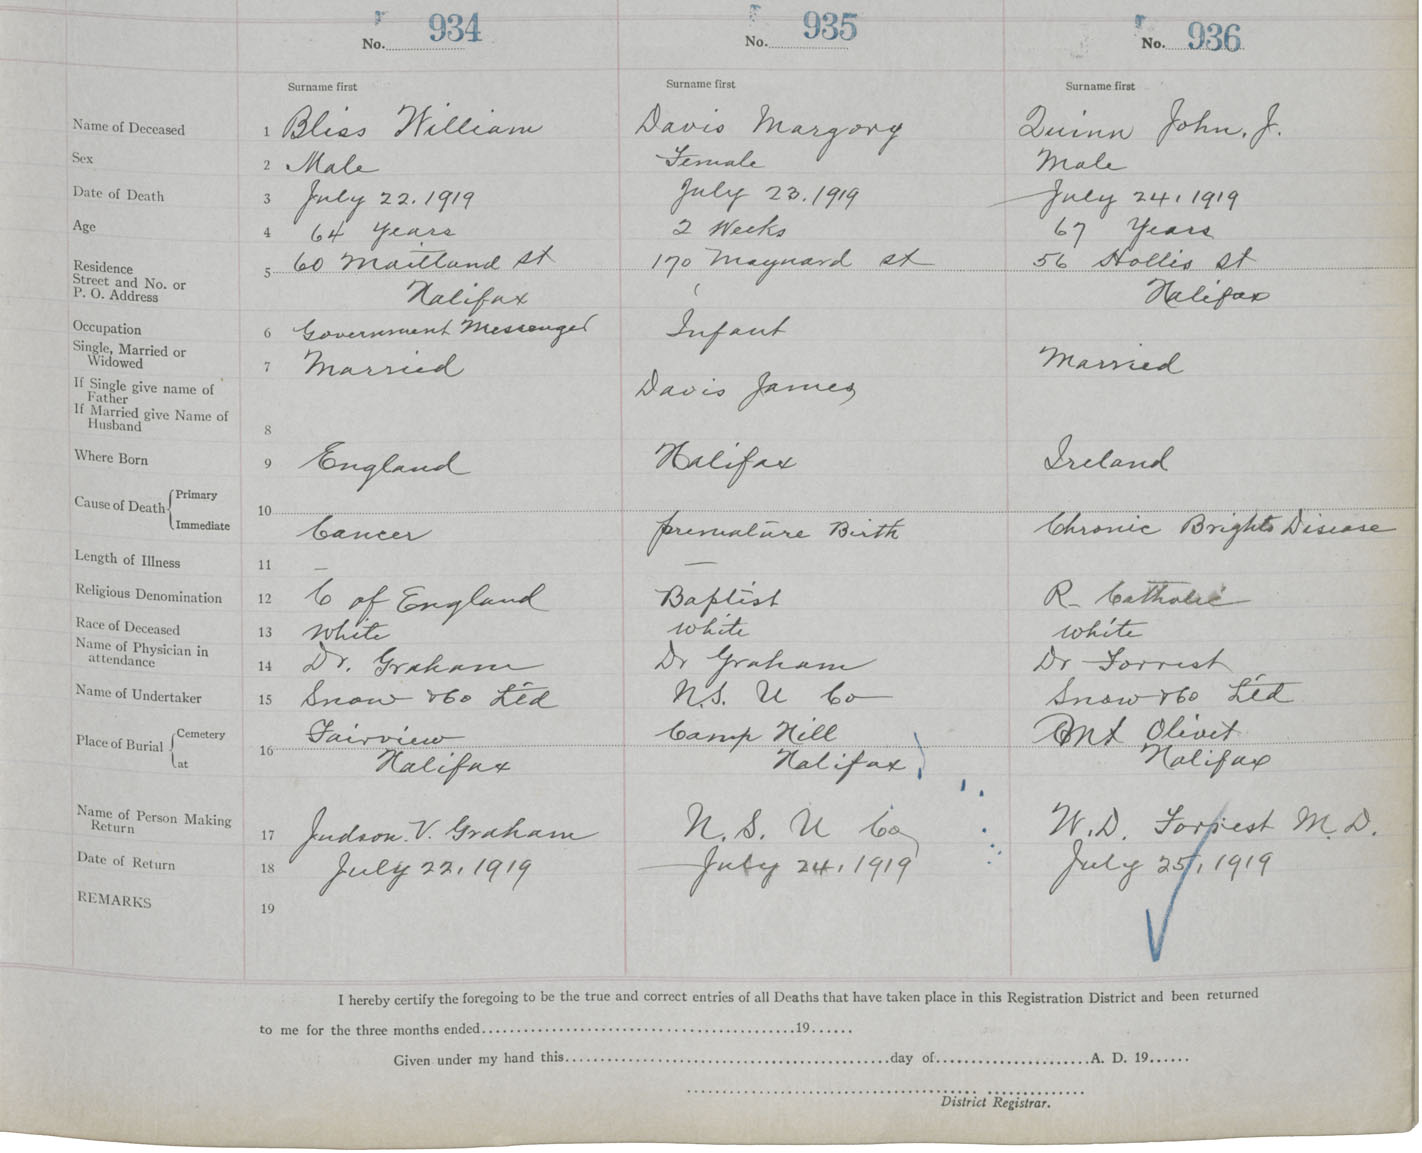 No. 934 No. 935 No. 936
Surname first Surname first Surname first
Name of Deceased 1 Bliss William Davis Margory Quinn John, J.
Sex 2 Male Female Male
Date of Death 3 July 22, 1919 July 23, 1919 July 24, 1919
Age 4 64 Years 2 Weeks 67 Years
Residence 5 60 Maitland St 170 Maynard St 56 Hollis St
Street and No. or
P. O. Address Halifax Halifax
Occupation 6 Government Messenger Infant
Single, Married or
Widowed 7 Married Married
If Single give name of
Father Davis James
If Married give Name of
Husband 8
Where Born 9 England Halifax Ireland
Cause of Death Primary 10
Immediate Cancer premature Birth Chronic Brights Disease
Length of Illness 11 — —
Religious Denomination 12 C of England Baptist R- Catholic
Race of Deceased 13 White White White
Name of Physician in
attendance 14 Dr. Graham Dr Graham Dr Forrest
Name of Undertaker 15 Snow & Co Ltd N.S. U Co Snow & Co Ltd
Place of Burial Cemetery 16 Fairview Camp Hill Mt Olivet
at Halifax Halifax Halifax
Name of Person Making
Return 17 Judson. V. Graham N. S. U Co W. D. Forrest M. D.
Date of Return 18 July 22, 1919 July 24, 1919 July 25, 1919
REMARKS 19
I hereby certify the foregoing to be the true and correct entries of all Deaths that have taken place in this Registration District and been returned
to me for the three months ended 19
Given under my hand this day of A. D. 19
District Registrar.